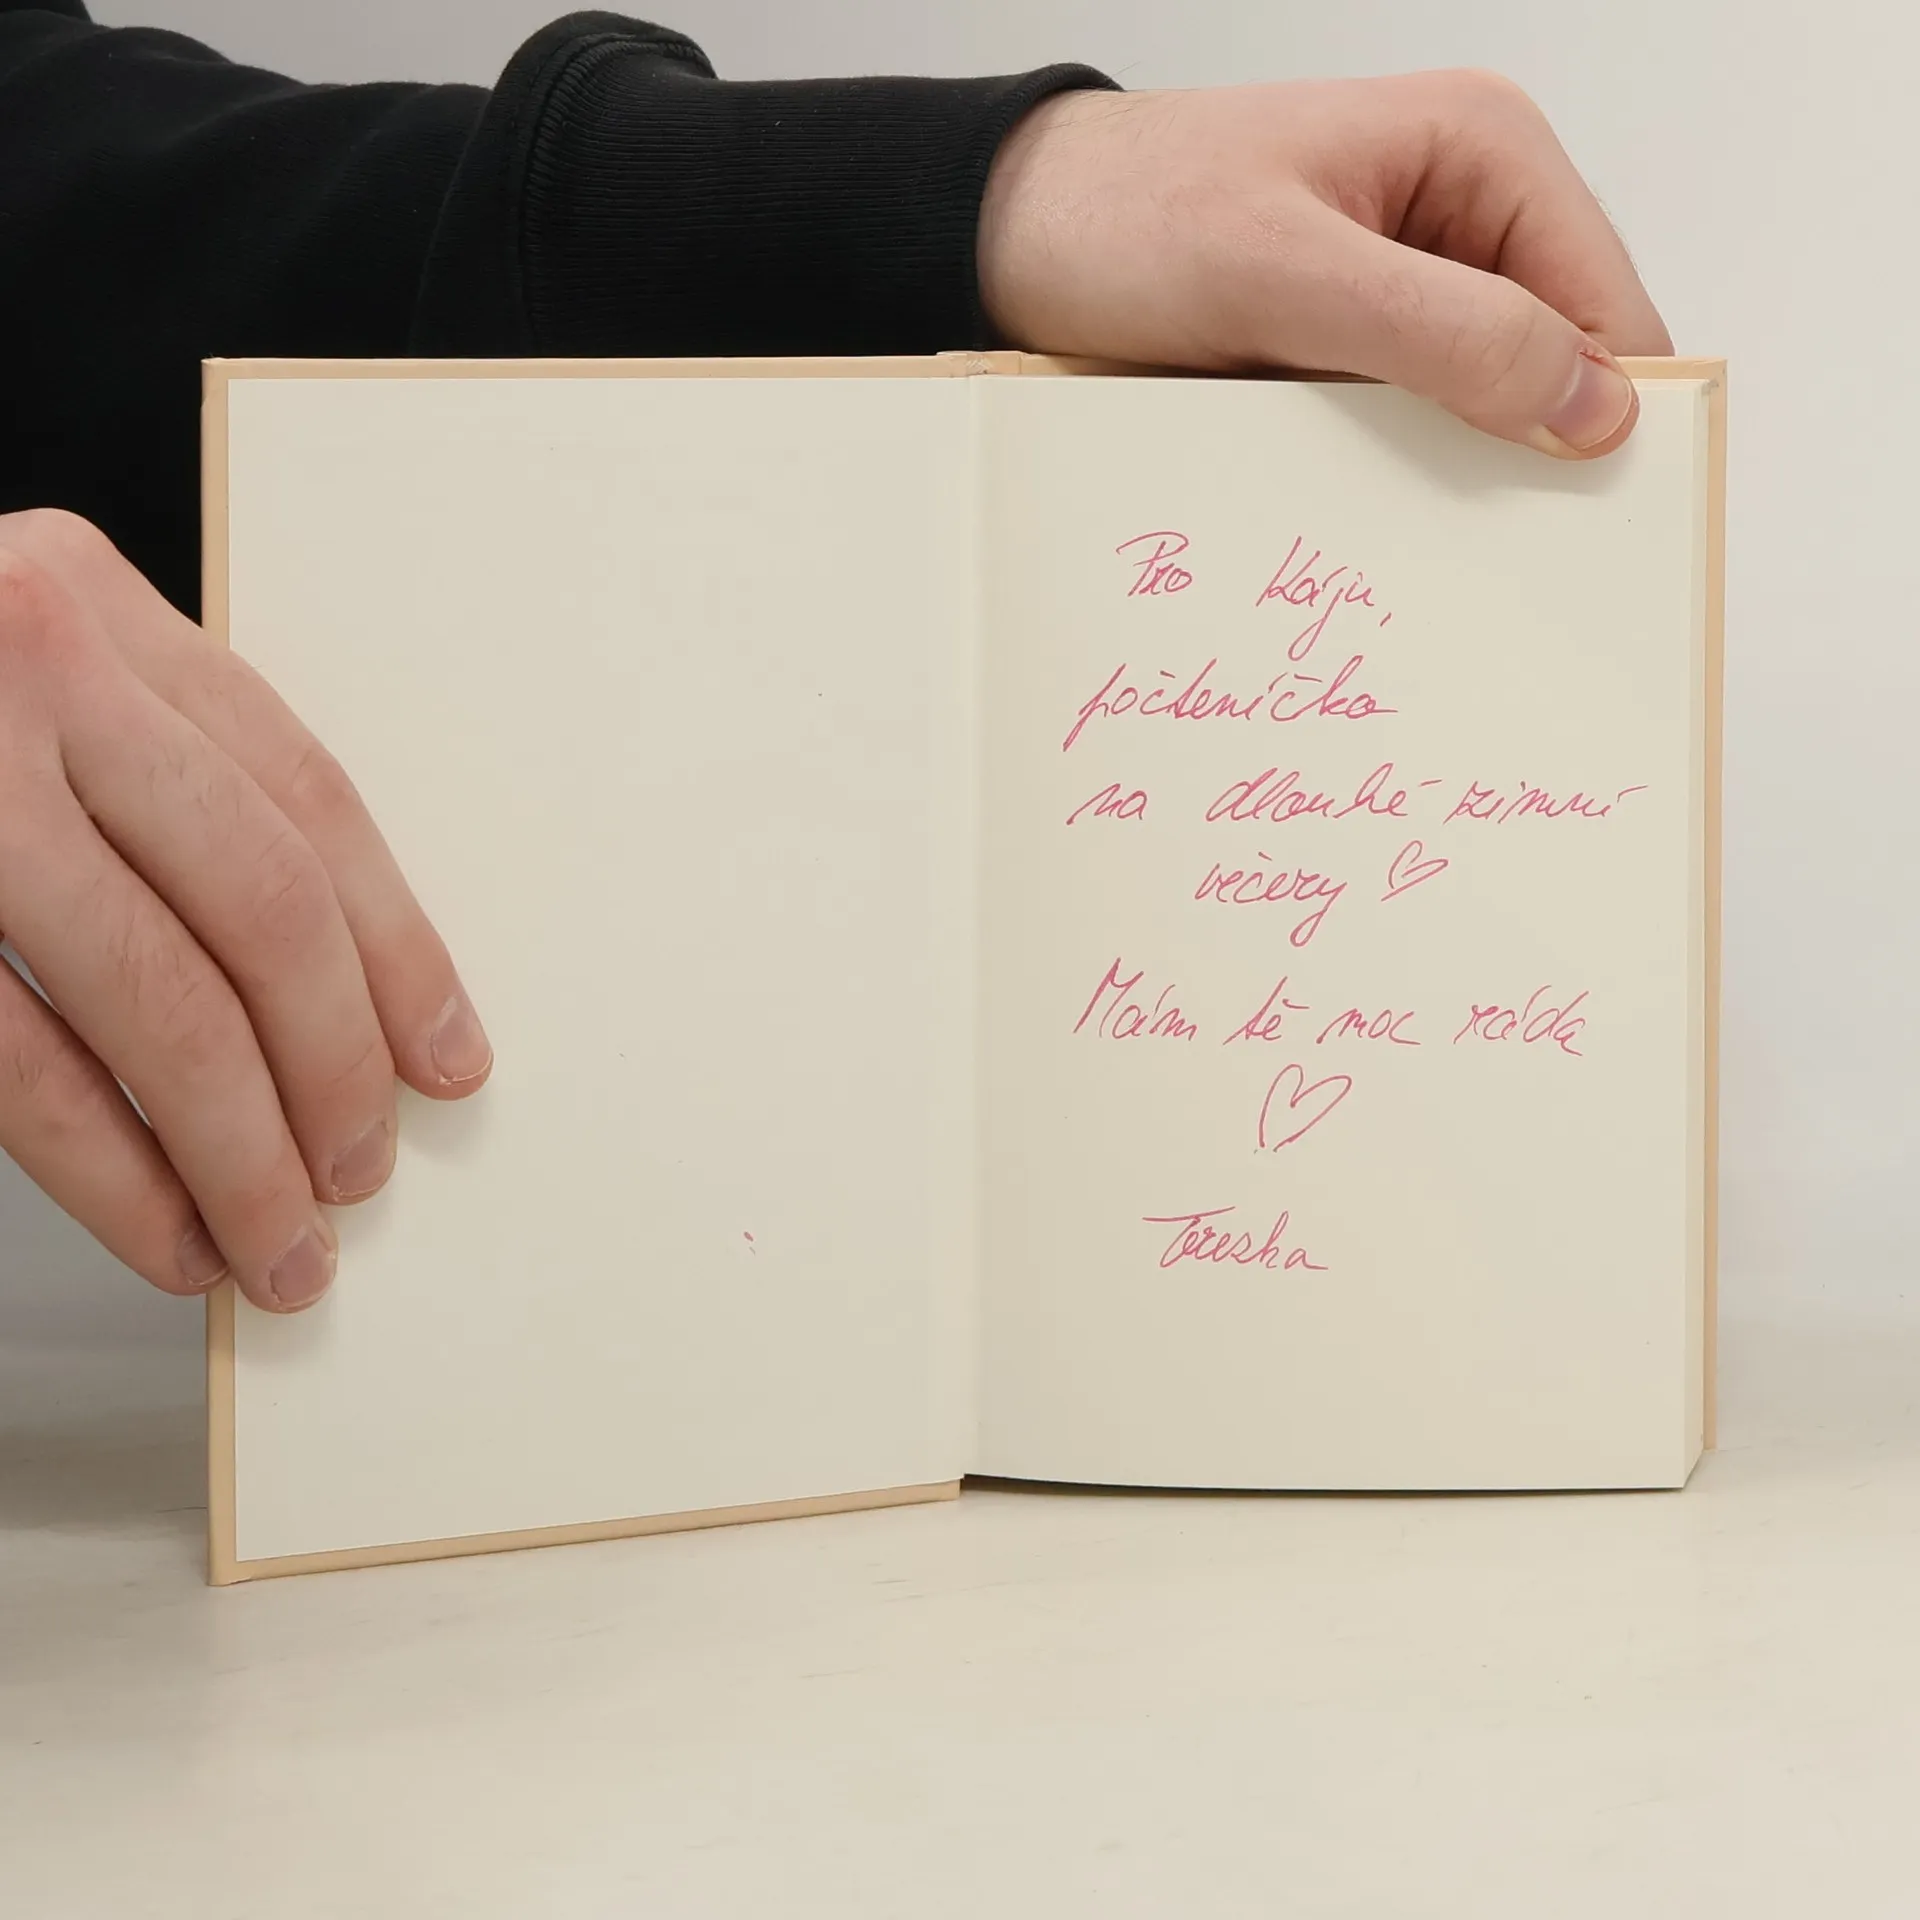 Pro Káju,
počteníčko
na dlouhé zimní
večery ♡
Mám tě moc ráda
♡
Terezka